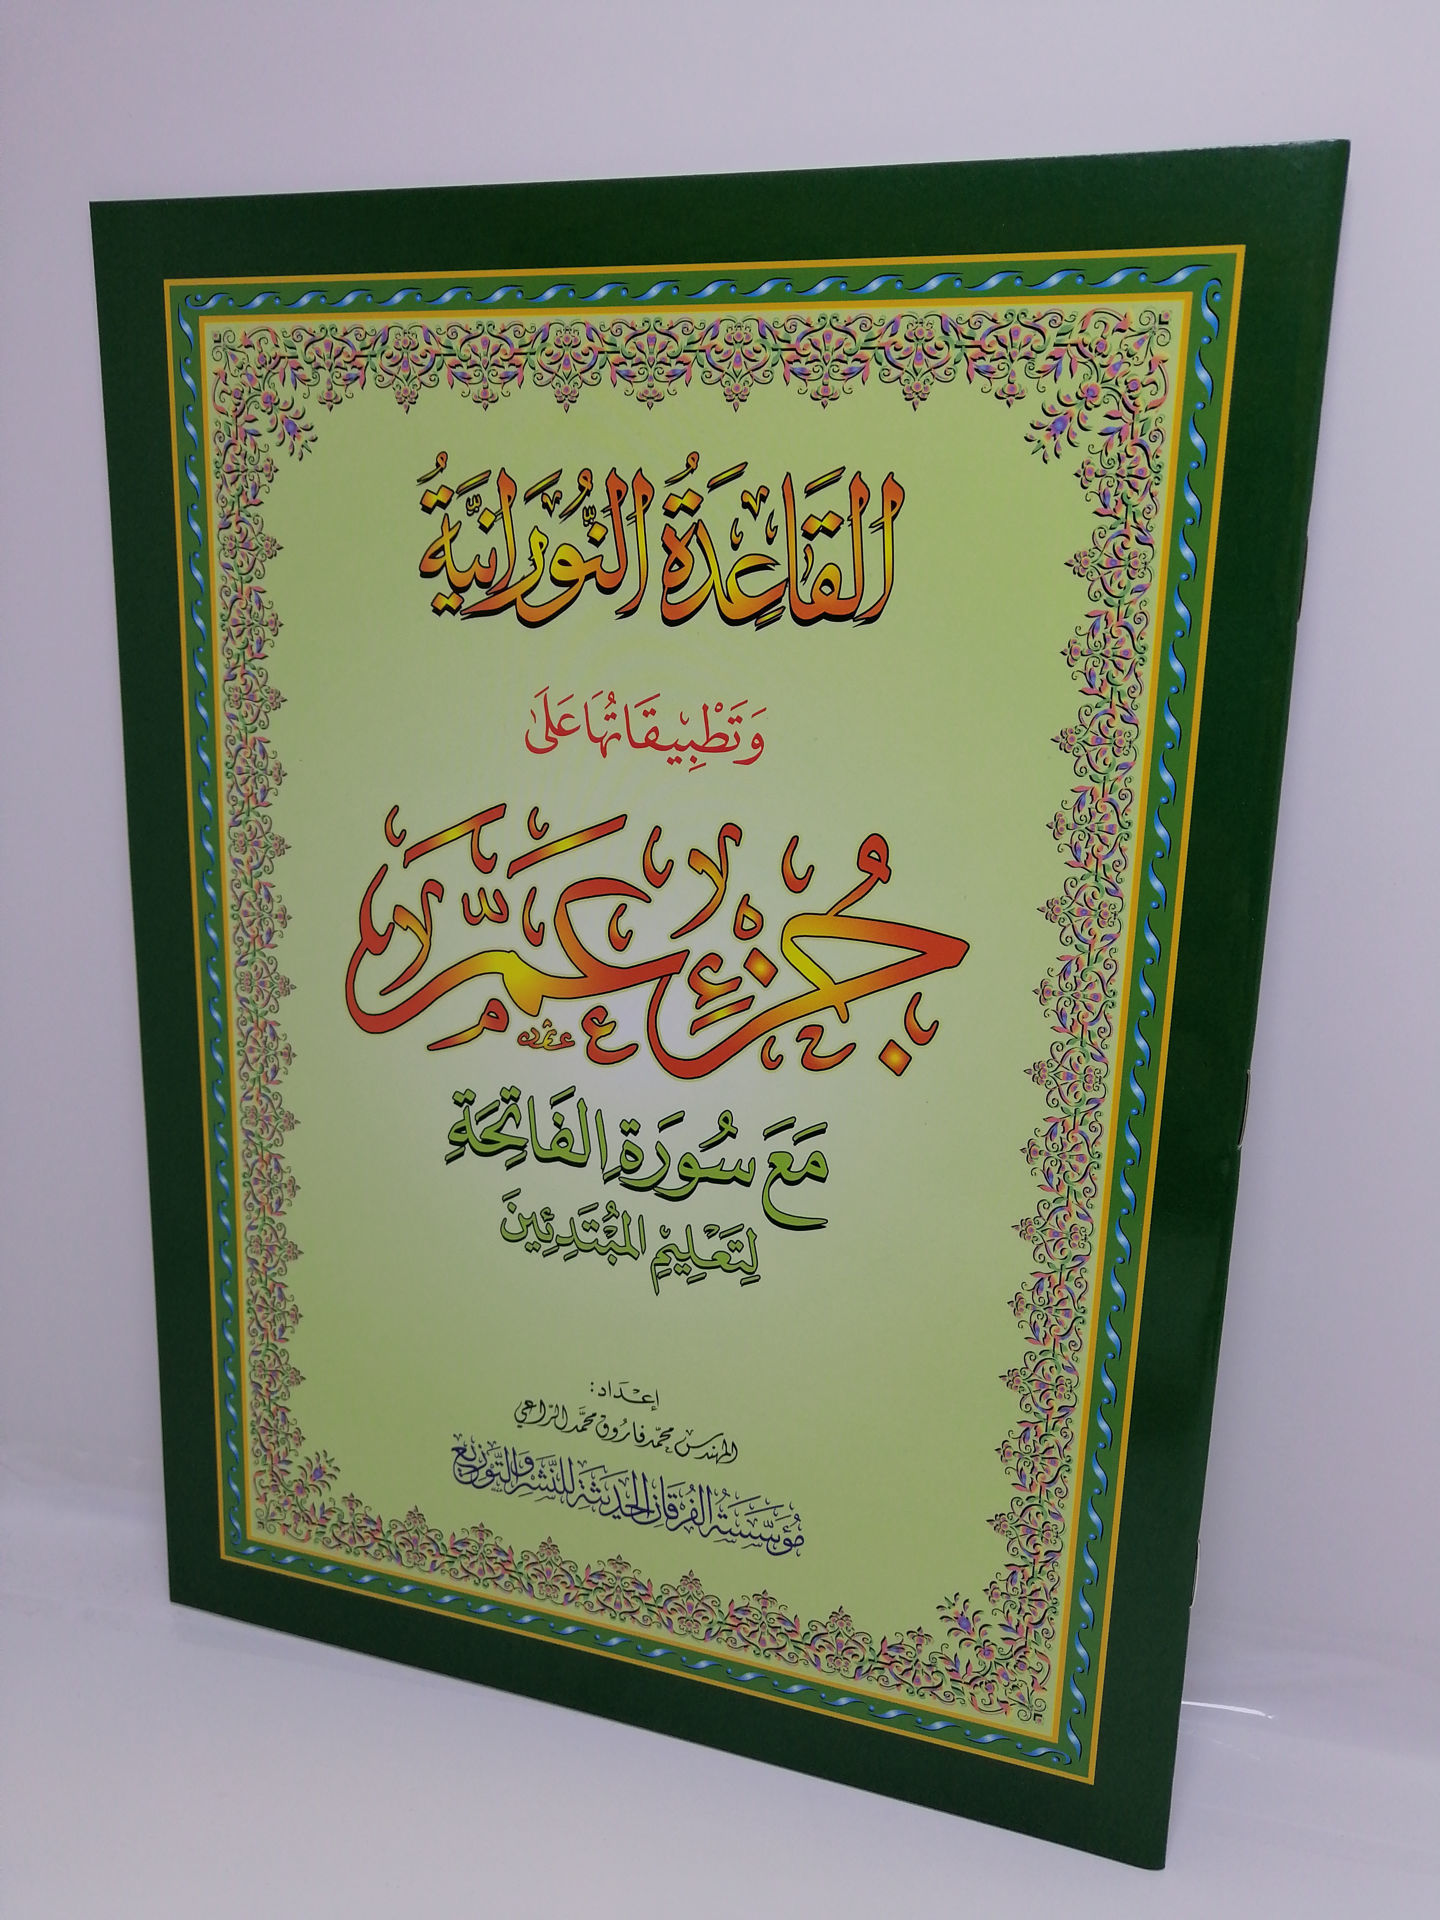 القَاعِدَةُ النُّورَانِيَّةُ
وَتَطْبِيقَاتُهَا عَلَى
جُزْءِ عَمَّ
مَعَ سُورَةِ الفَاتِحَةِ
لِتَعْلِيمِ المُبْتَدِئِينَ
إعْدَاد:
المهندس محمّد فاروق محمّد الرّاعي
مُؤَسَّسَةُ الفُرْقَانِ الحَدِيثَةُ لِلنَّشْرِ وَالتَّوْزِيعِ